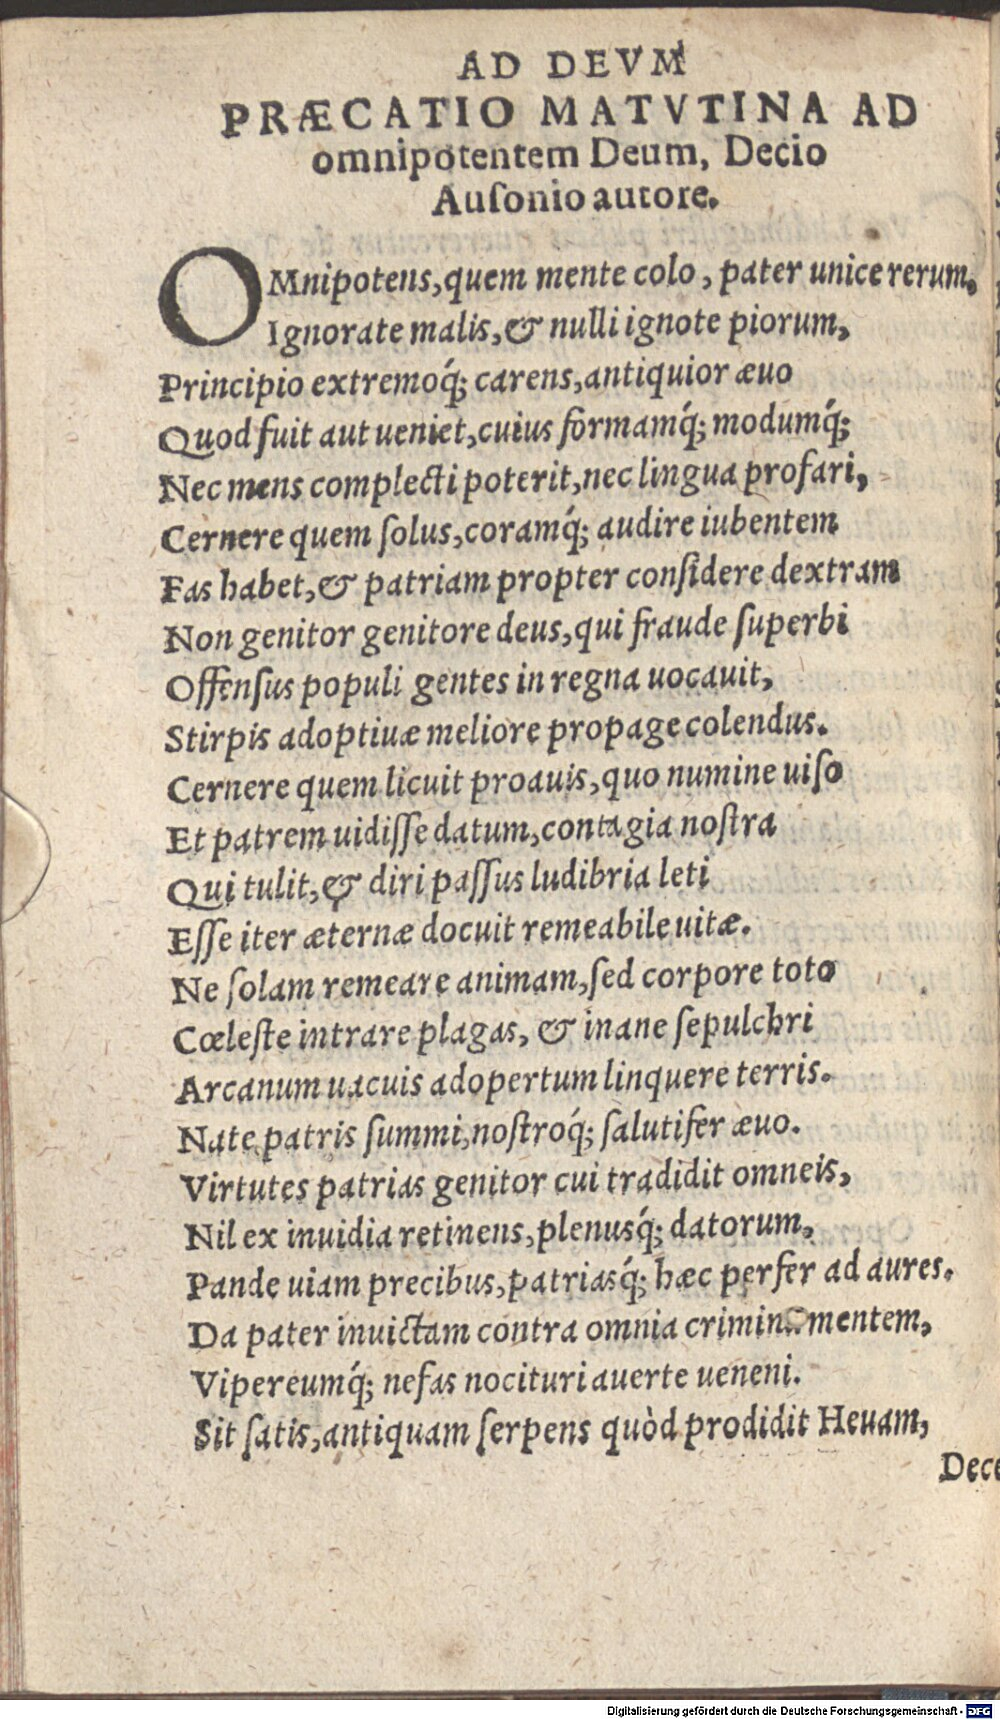 AD DEVM
PRÆCATIO MATVTINA AD
omnipotentem Deum, Decio
Auſonio autore.
OMnipotens, quem mente colo, pater unice rerum,
Ignorate malis, & nulli ignote piorum,
Principio extremoq́; carens, antiquior æuo
Quod fuit aut ueniet, cuius formamq́; modumq́;
Nec mens complecti poterit, nec lingua profari,
Cernere quem ſolus, coramq́; audire iubentem
Fas habet, & patriam propter conſidere dextram
Non genitor genitore deus, qui fraude ſuperbi
Offenſus populi gentes in regna uocauit,
Stirpis adoptiuæ meliore propage colendus.
Cernere quem licuit proauis, quo numine uiſo
Et patrem uidiſſe datum, contagia noſtra
Qui tulit, & diri paſſus ludibria leti
Eſſe iter æternæ docuit remeabile uitæ.
Ne ſolam remeare animam, ſed corpore toto
Cœleſte intrare plagas, & inane ſepulchri
Arcanum uacuis adopertum linquere terris.
Nate patris ſummi, noſtroq́; ſalutifer æuo.
Virtutes patrias genitor cui tradidit omneis,
Nil ex inuidia retinens, plenusq́; datorum,
Pande uiam precibus, patriasq́; hæc perfer ad aures.
Da pater inuictam contra omnia crimina mentem,
Vipereumq́; nefas nocituri auerte ueneni.
Sit ſatis, antiquam ſerpens quòd prodidit Heuam,
Dece
Digitalisierung gefördert durch die Deutsche Forschungsgemeinschaft - DFG